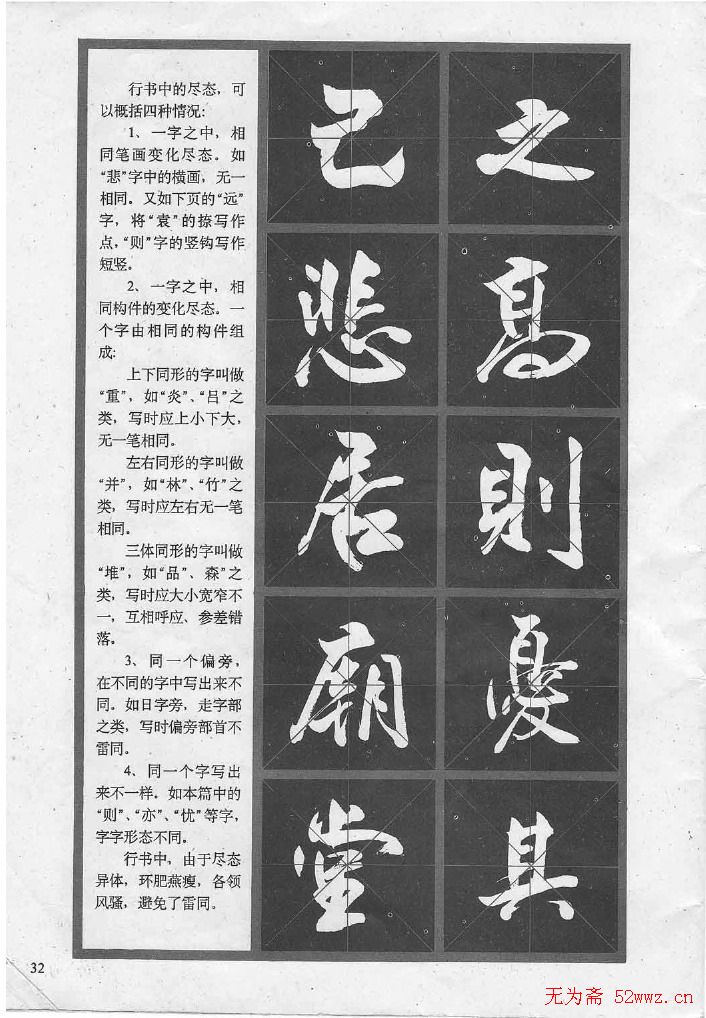 行书中的尽态，可
以概括四种情况：
1、一字之中，相
同笔画变化尽态。如
“悲”字中的横画，无一
相同。又如下页的“远”
字，将“袁”的捺写作
点，“则”字的竖钩写作
短竖。
2、一字之中，相
同构件的变化尽态。一
个字由相同的构件组
成：
上下同形的字叫做
“重”，如“炎”、“吕”之
类，写时应上小下大，
无一笔相同。
左右同形的字叫做
“并”，如“林”、“竹”之
类，写时应左右无一笔
相同。
三体同形的字叫做
“堆”，如“品”、森”之
类，写时应大小宽窄不
一，互相呼应、参差错
落。
3、同一个偏旁，
在不同的字中写出来不
同。如日字旁，走字部
之类，写时偏旁部首不
雷同。
4、同一个字写出
来不一样。如本篇中的
“则”、“亦”、“忧”等字，
字字形态不同。
行书中，由于尽态
异体，环肥燕瘦，各领
风骚，避免了雷同。
之高則憂其
己悲居廟堂
32
无为斋 52wwz.cn